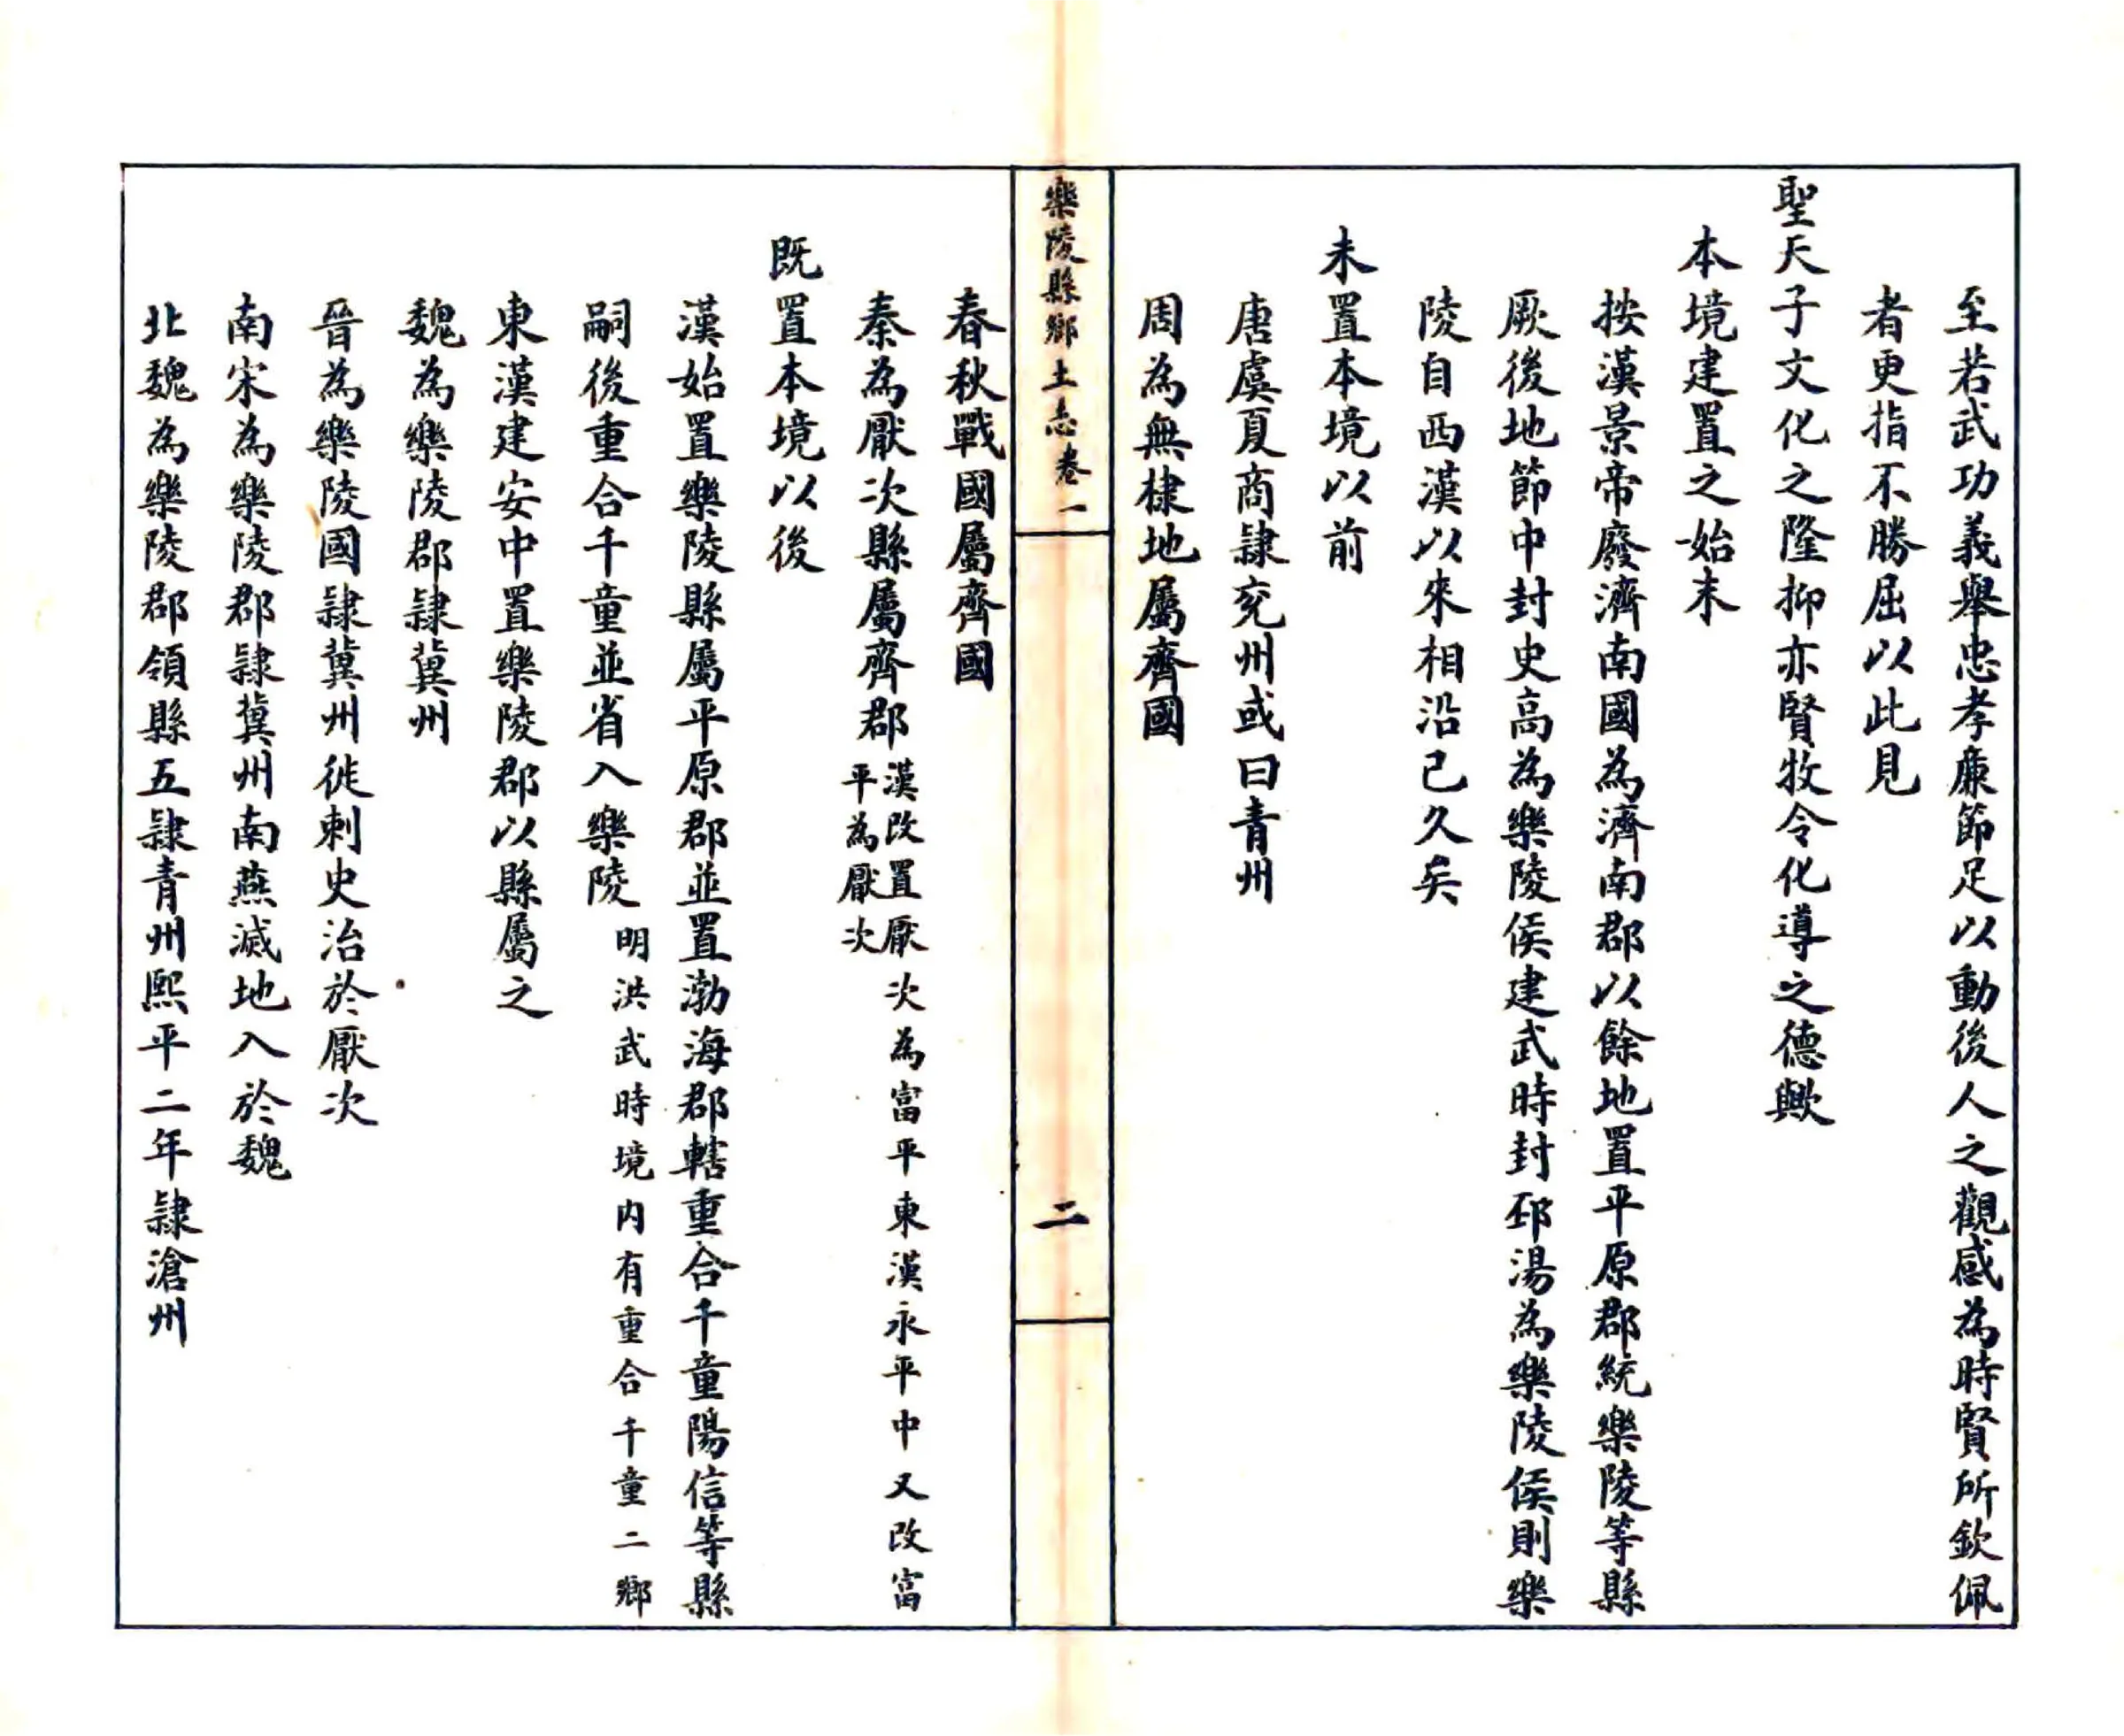 至若武功義舉忠孝廉節足以動後人之觀感為時賢所欽佩
者更指不勝屈以此見
聖天子文化之隆抑亦賢牧令化導之德歟
本境建置之始末
按漢景帝廢濟南國為濟南郡以餘地置平原郡統樂陵等縣
厥後地節中封史高為樂陵侯建武時封邳湯為樂陵侯則樂
陵自西漢以來相沿已久矣
未置本境以前
唐虞夏商隸兖州或曰青州
周為無棣地屬齊國
樂陵縣鄉土志卷一
二
春秋戰國屬齊國
秦為厭次縣屬齊郡
漢改置厭次為富平東漢永平中又改富
平為厭次
既置本境以後
漢始置樂陵縣屬平原郡並置渤海郡轄重合千童陽信等縣
嗣後重合千童並省入樂陵
明洪武時境内有重合千童二鄉
東漢建安中置樂陵郡以縣屬之
魏為樂陵郡隸冀州
晉為樂陵國隸冀州徙刺史治於厭次
南宋為樂陵郡隸冀州南燕滅地入於魏
北魏為樂陵郡領縣五隸青州熙平二年隸滄州